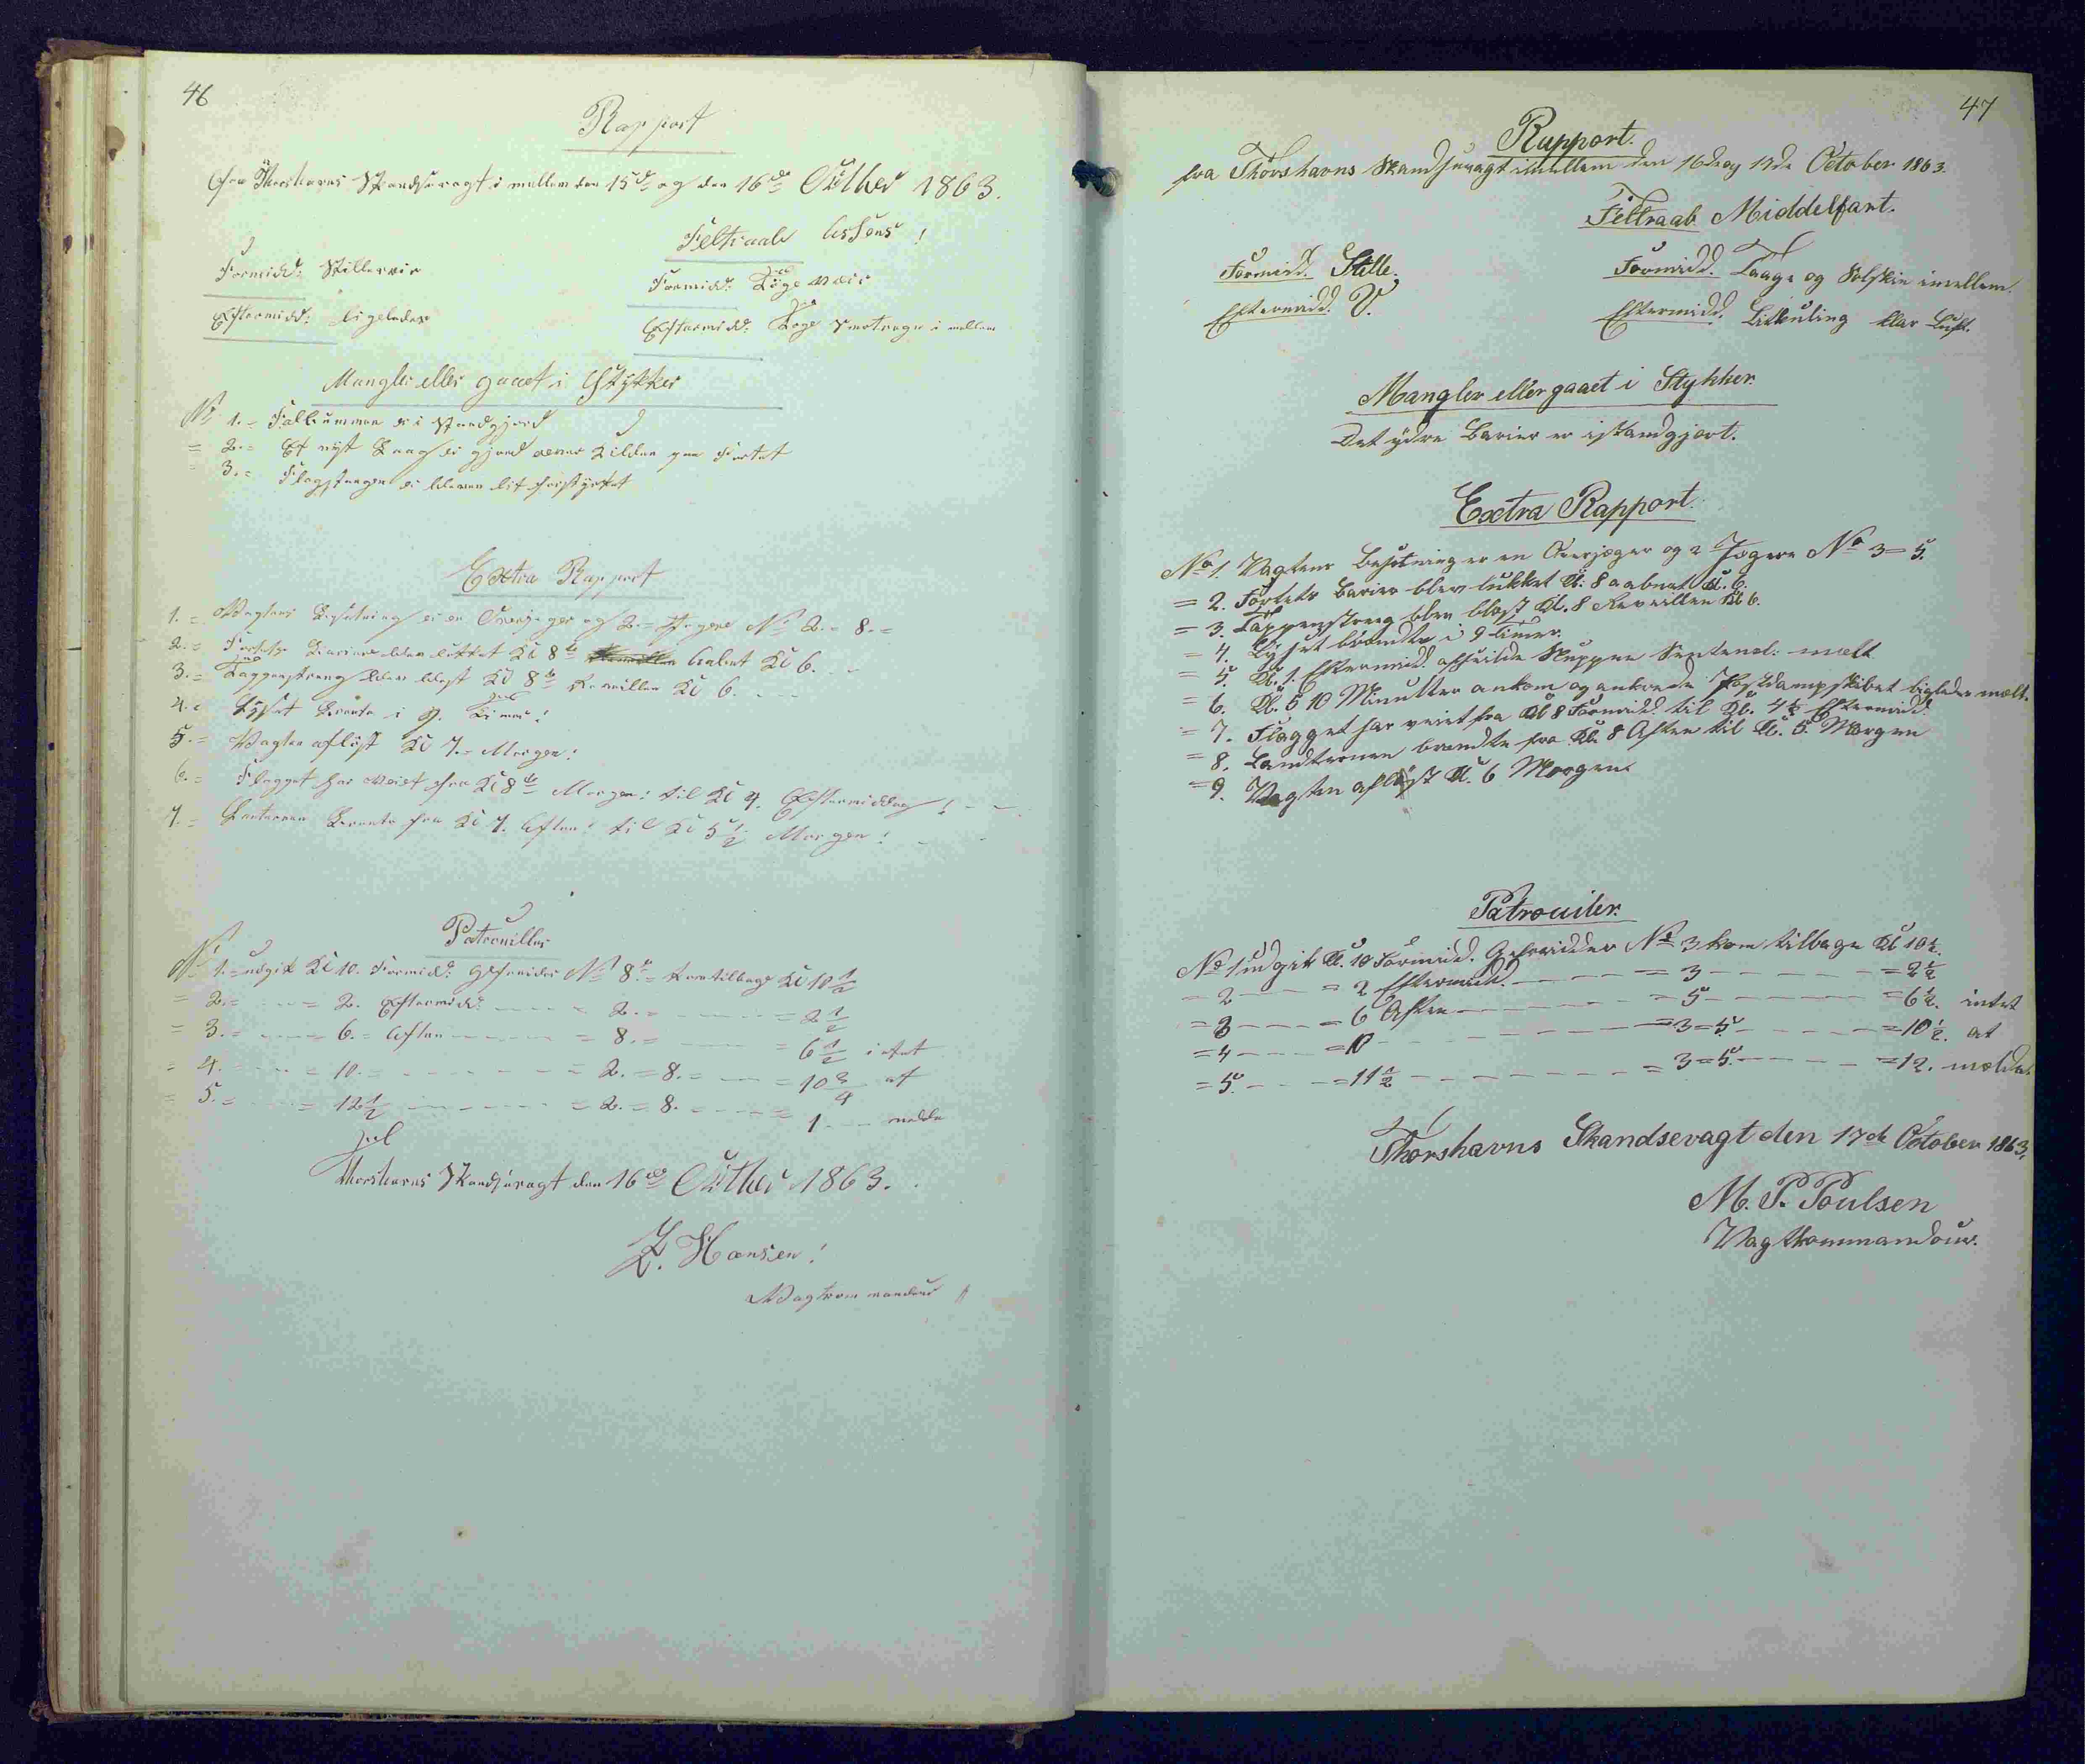 46
Rapport
fra Thorshavns Skandsevagt i mellem den 15de og den 16de Octbr 1863.
Feltraab Assens!
Formidd: Stilleveir
Formidd: Töge Veir
Eftermidd: Ligeledes
Eftermidd: Töge i mellem
Mangler eller gaaet i Stykker
No 1. = er i Standgjord
= 2. = Et nyt er gjord over Kilden paa Fortet
= 3. = Flagstangen er bleven
Extra Rapport
1. = Vagtens Besetning er en Overjeger og 2. = Jegere No 2. = 8. =
2. = Fortets Bariere blev lukket Kl 8 te Aabnet Kl 6. - -
3. = Tappenstreng blev blest Kl 8 te Revellien Kl 6. - - -
4. = Lyset brente i 9. Timer!
5. = Vagten aflöst Kl 7. = Morgen!
6. = Flagget har Veiet fra Kl 8 te Morgen: til Kl 4. Eftermiddag! - -
7. = Lanternen brente fra Kl 7. Aften: til Kl 5 1/2 Morgen!
Patrouiller
No 1. = udgik Kl 10. Formidd: Gefreider No 8. = kom tilbage Kl 10 1/2
= 2. = - - = 2. Eftermidd: - - - 2. = - - - = 2 1/2
= 3. = - - = 6. = Aften - - - = 8. = - - - = 6 1/2 intet
= 4. = - - = 10. = - - - = 2. = 8. = - - = 10 3/4 at
= 5. = - - = 12 1/2 - - - = 2. = 8. - - - = 1 - - melde
Thorshavns Skandsevagt den 16de Octbr 1863.
Z. Hansen!
Vagtkommandeur
47
Rapport.
fra Thorshavns Skandsevagt imellem den 16de og 17de October 1863.
Feltraab. Middelfart.
Formidd. Stille.
Formidd. Taage og Solskin imellem.
Eftermidd. V.
Eftermidd. Litkuling klar Luft.
Mangler eller gaaet i Stykker.
Det ydre Barier er istandgjort.
Extra Rapport.
No 1. Vagtens Besetning er en Overjæger og 2 Jægere No 3 = 5.
= 2. Fortets Barier blev lukket Kl. 8 aabnet Kl. 6.
= 3. Tappenstreng blev blest Kl. 8 Reveillen Kl 6.
= 4. Lyset brændte i 9 Timer.
= 5. Kl. 1. Eftermid. afseilde Sluppen mælt
= 6. Kl. 5 10 Minutter ankom og ankrede Postdampskibet ligeledes mælt.
= 7. Flagget har veiet fra Kl 8 Formidd. til Kl. 4 1/2 Eftermidd.
= 8. Landternen brændte fra Kl. 8 Aften til Kl. 5. Morgen
= 9. Vagten aflöst Kl. 6 Morgen.
Patrouiler.
No 1 udgik Kl. 10 Formidd. Gefreidder No 3 kom tilbage Kl 10 1/2.
= 2 - - - = 2 Eftermidd. - - - = 3 - - - = 2 1/2
= 3 - - - = 6 Aften - - - = 5 - - - = 6 1/2. intet
= 4 - - - = 10 - - - = 3 = 5. - - - = 10 1/2. at
= 5. - - - = 11 1/2 - - - = 3 = 5. - - - = 12. mælde.
Thorshavns Skandsevagt den 17de October 1863.
M. P. Poulsen
Vagtkommandour.